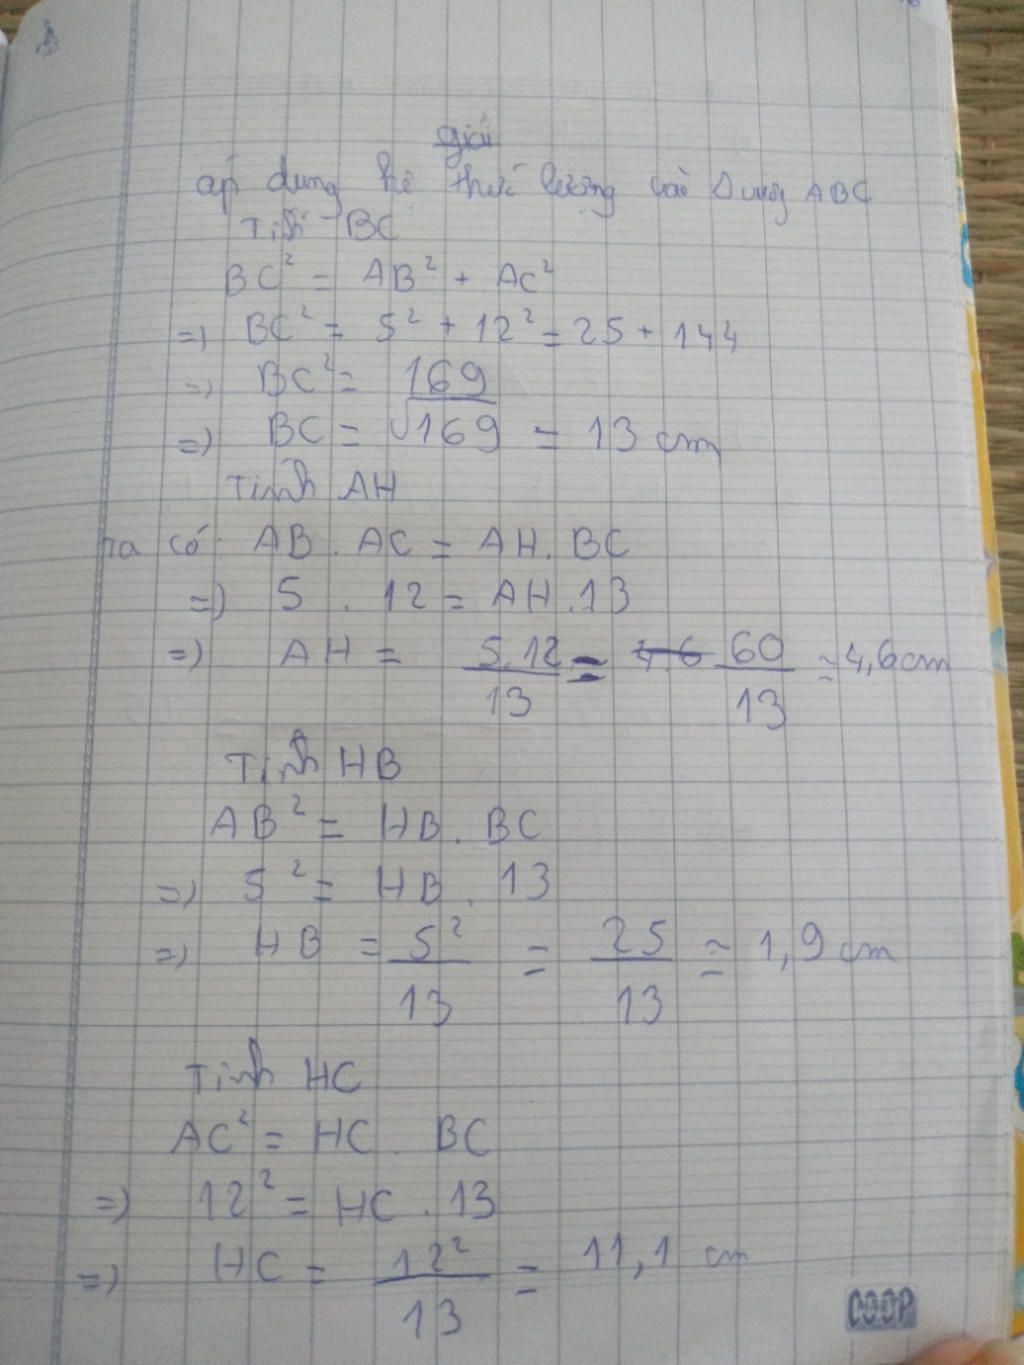 giải
áp dụng hệ thức lượng vào Δ vuông ABC
Tính BC
BC² = AB² + AC²
=> BC² = 5² + 12² = 25 + 144
=> BC² = 169
=> BC = √169 = 13 cm
Tính AH
Ta có: AB . AC = AH . BC
=> 5 . 12 = AH . 13
=> AH = 5.12/13 = 4,6 60/13 ≈ 4,6 cm
Tính HB
AB² = HB . BC
=> 5² = HB . 13
=> HB = 5²/13 = 25/13 ≈ 1,9 cm
Tính HC
AC² = HC . BC
=> 12² = HC . 13
=> HC = 12²/13 = 11,1 cm
COOP